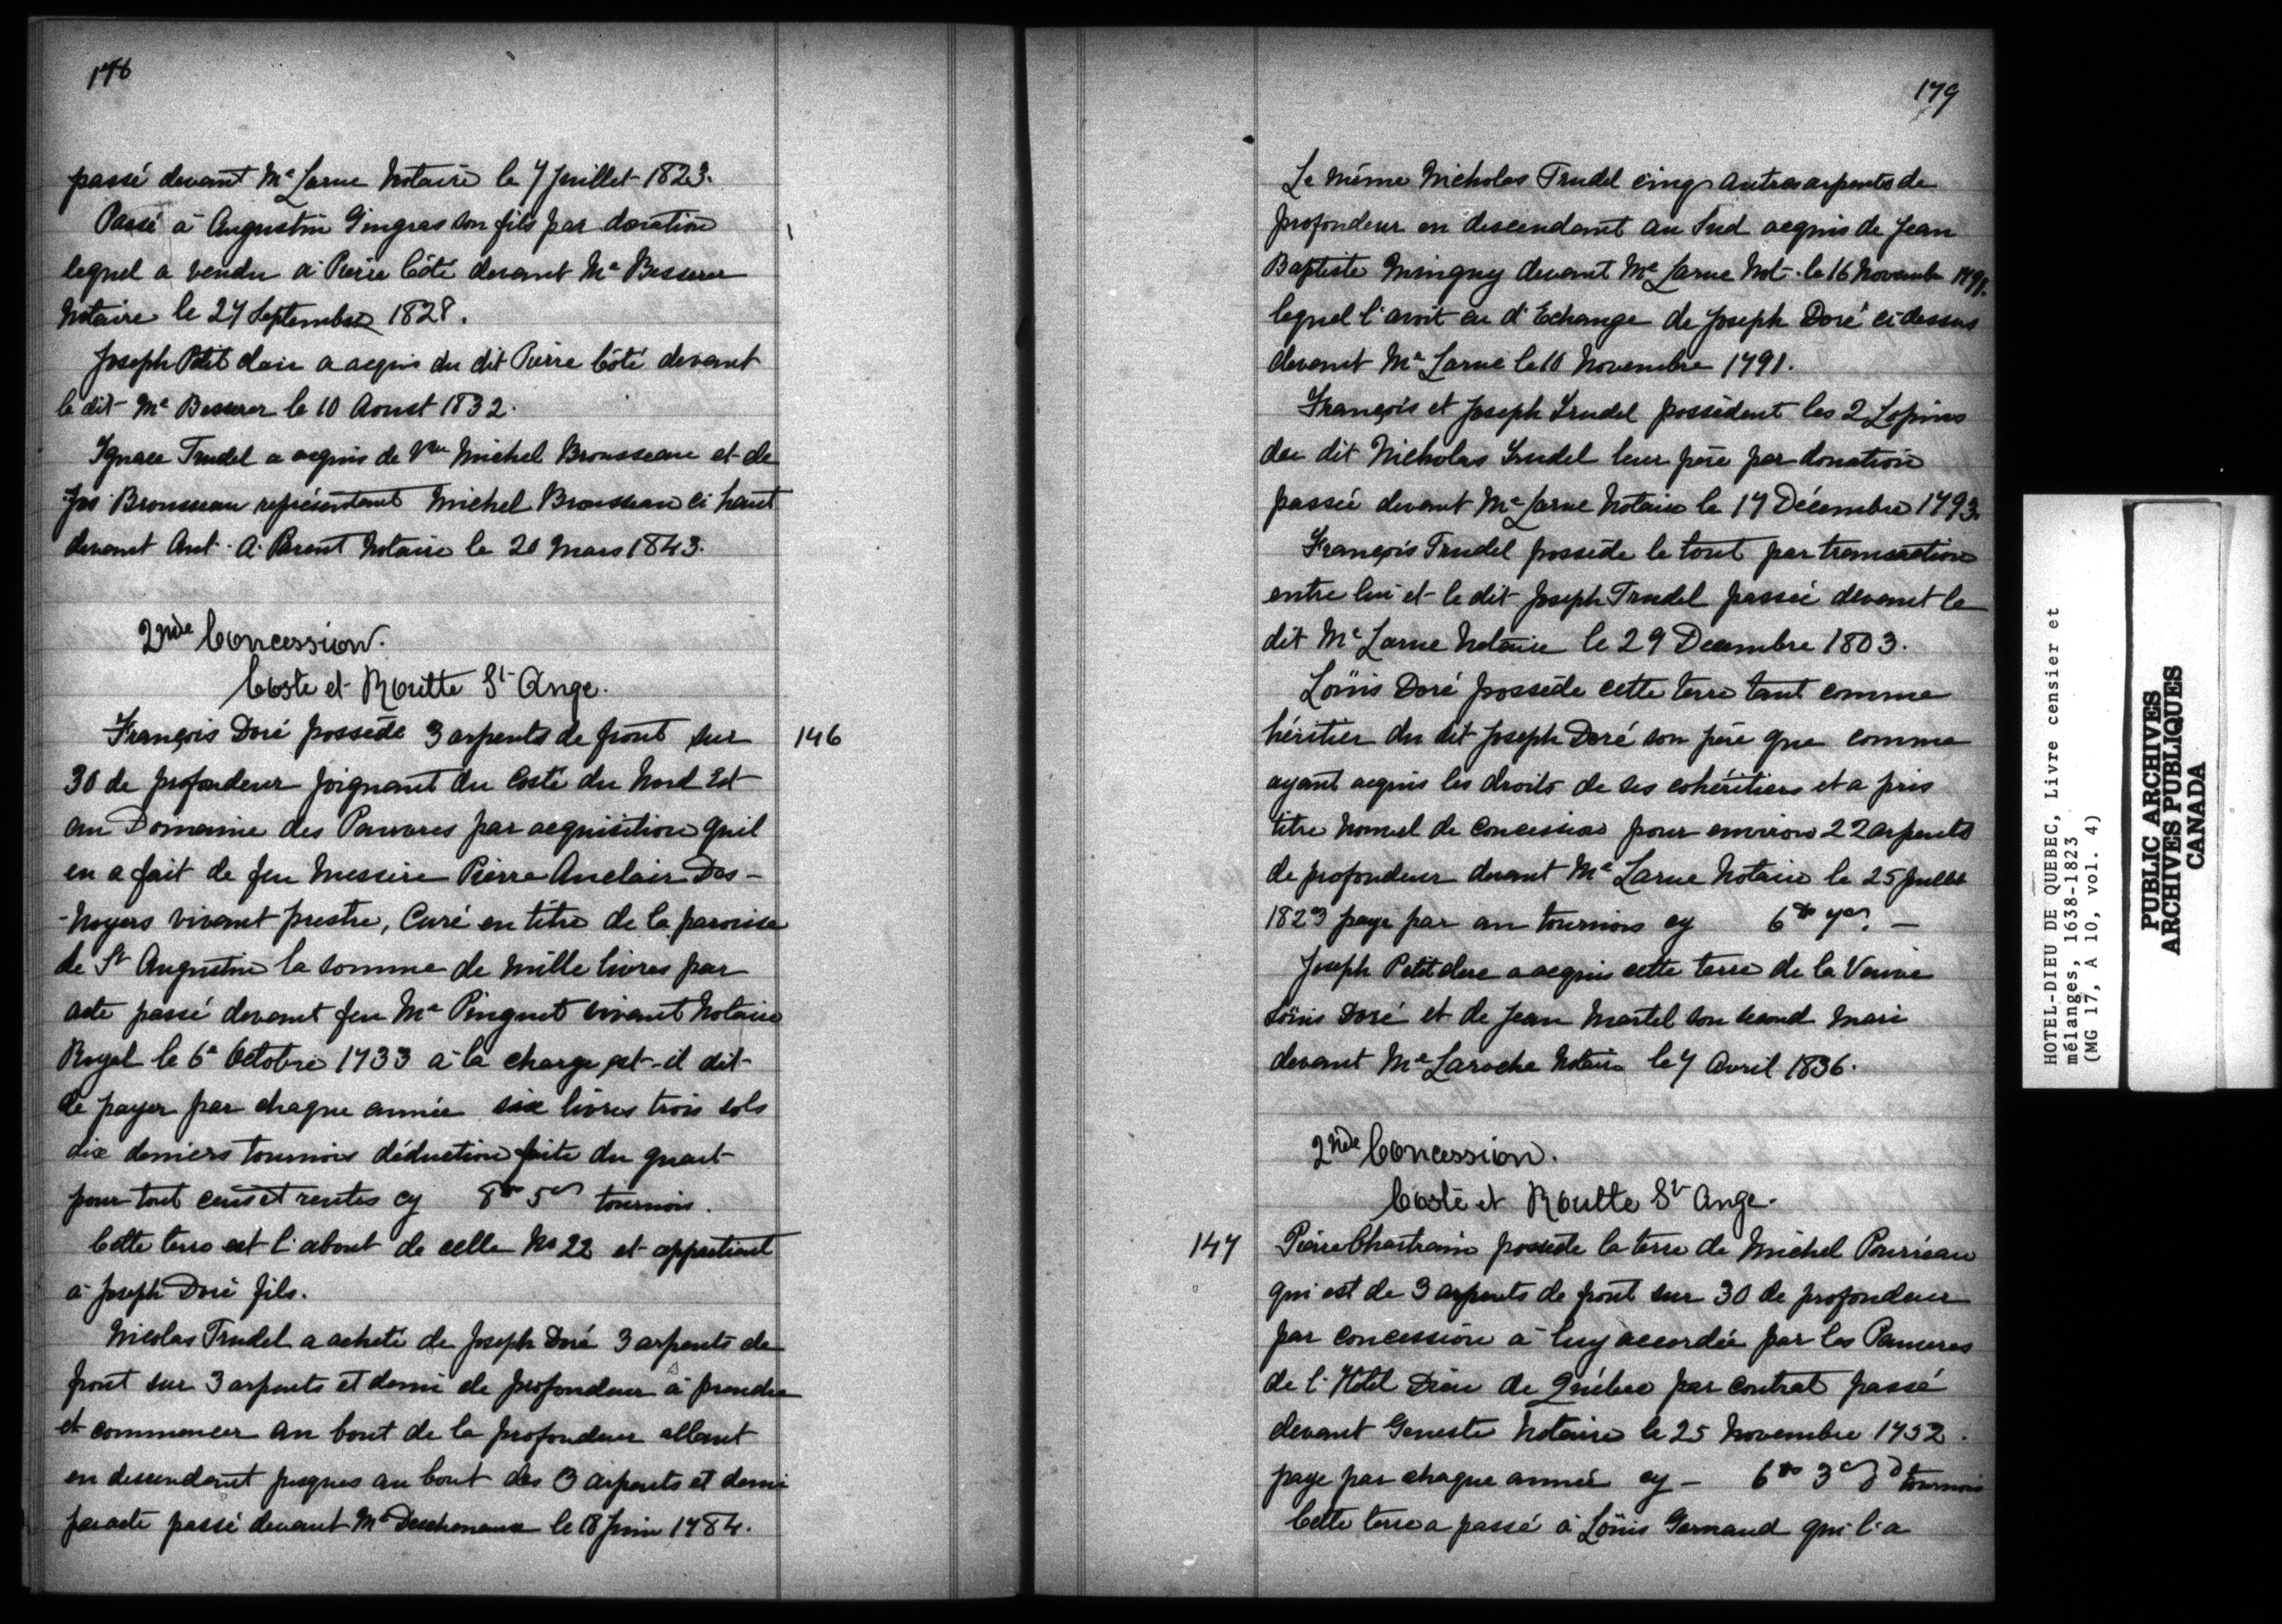 178
passé devant Me Larue Notaire le 7 Juillet 1823.
Passé à Augustin Gingras son fils par donation
lequel a vendu à Pierre Côté devant Me Besserer
Notaire le 27 Septembre 1828.
Joseph Petit clair a acquis du dit Pierre Côté devant
le dit Me Besserer le 10 Aoust 1832.
Ignace Trudel a acquis de Vve Michel Brousseau et de
Jos Brousseau représentant Michel Brousseau ci haut
devant Ant. A. Parent Notaire le 20 Mars 1843.
2nde Concession.
Coste et Routte St Ange.
146
François Doré possède 3 arpents de front sur
30 de profondeur joignant du Costé du Nord Est
au Domaine des Pauvres par acquisition quil
en a fait de feu Messire Pierre Auclair Des-
-Noyers vivant prestre, Curé en titre de la paroisse
de St Augustin la somme de Mille livres par
acte passé devant feu Me Pinguet vivant Notaire
Royal le 6e Octobre 1733 à la charge est-il dit
de payer par chaque année six livres trois sols
dix deniers tournois déduction faite du quart
pour tout cens et rentes cy 8tt 5s tournois.
Cette terre est l'about de celle No 22 et appartient
à Joseph Doré fils.
Nicolas Trudel a acheté de Joseph Doré 3 arpents de
front sur 3 arpents et demi de profondeur à prendre
et commencer au bout de la profondeur allant
en descendant jusques au bout des 3 arpents et demi
par acte passé devant Me Deschenaux le 18 Juin 1784.
179
Le Même Nicholas Trudel cinq autres arpents de
profondeur en descendant au Sud acquis de Jean
Baptiste Minguy devant Me Larue Not. le 16 Novembr 1791.
lequel l'avoit eu d'Echange de Joseph Doré ci dessus
devant Me Larue le 10 Novembre 1791.
François et Joseph Trudel possèdent les 2 Lopins
du dit Nicholas Trudel leur père par donation
passée devant Me Larue Notaire le 17 Décembre 1793.
François Trudel possède le tout par transaction
entre lui et le dit Joseph Trudel passée devant le
dit Me Larue Notaire le 29 Decembre 1803.
Loüis Doré possède cette terre tant comme
héritier du dit Joseph Doré son père que comme
ayant acquis les droits de ses cohéritiers et a pris
titre nouvel de concession pour environ 22 arpents
de profondeur devant Me Larue Notaire le 25 Juillet
1823 paye par an tournois cy 6tt 7s. —
Joseph Petitclerc a acquis cette terre de la Veuve
Loüis Doré et de Jean Martel son second mari
devant Me Laroche Notaire le 7 Avril 1836.
2nde Concession.
Coste et Routte St Ange.
147
Pierre Chartrain possède la terre de Michel Pourreau
qui est de 3 arpents de front sur 30 de profondeur
par concession à luy accordée par les Pauvres
de l'Hôtel Dieu de Québec par contrat passé
devant Geneste Notaire le 25 Novembre 1752.
paye par chaque année cy - 6tt 3s 8d tournois
Cette terre a passé à Loüis Gernaud qui l'a
HOTEL-DIEU DE QUEBEC, Livre censier et
mélanges, 1638-1823
(MG 17, A 10, vol. 4)
PUBLIC ARCHIVES
ARCHIVES PUBLIQUES
CANADA